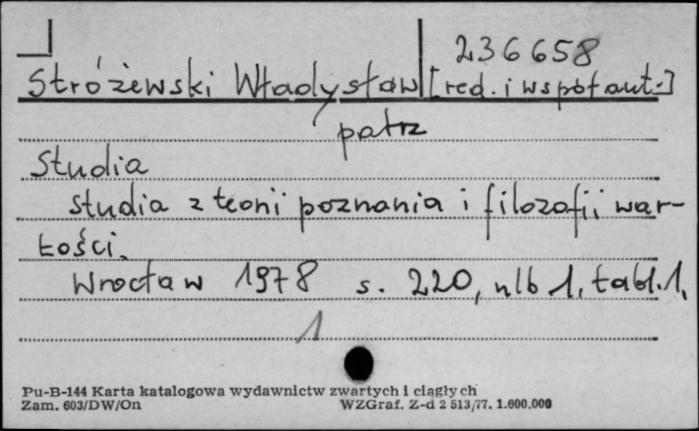 236658
Stróżewski Władysław [red. i współaut.]
patrz
Studia
Studia z teorii poznania i filozofii war-
tości.
Wrocław 1978 s. 220, nlb 1, tabl. 1.
1
Pu-B-144 Karta katalogowa wydawnictw zwartych i ciągłych
Zam. 603/DW/On WZGraf. Z-d 2 513/77. 1.600.000